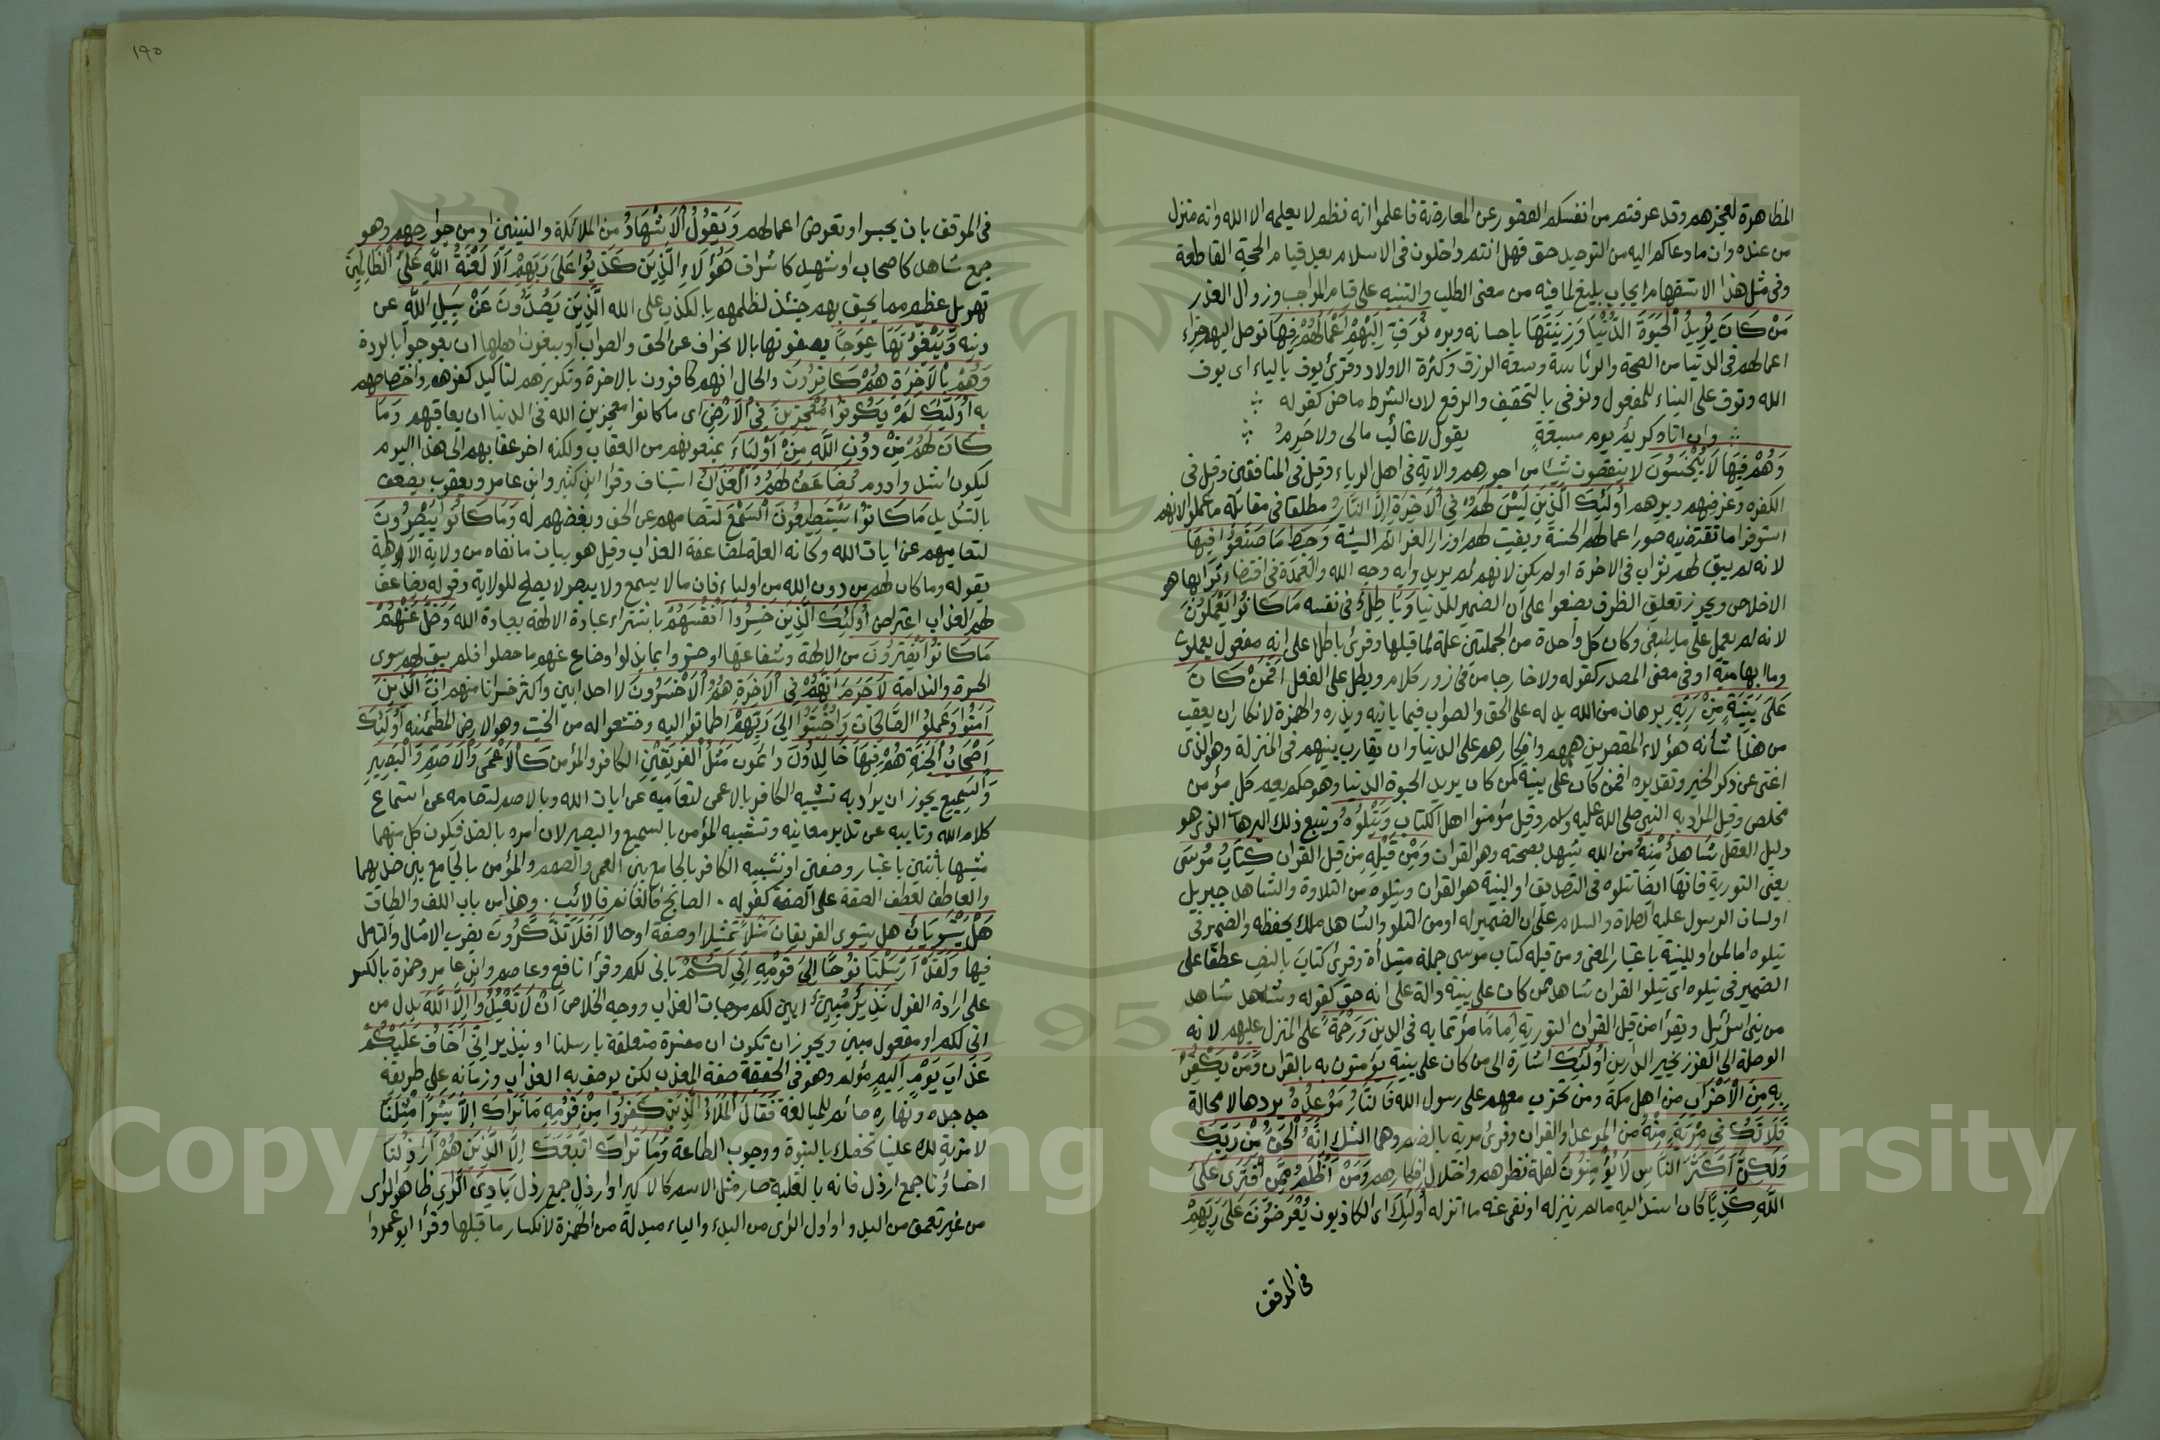 المظاهرة لعجزهم وقد عرفتم من انفسكم القصور عن المعارضة فاعلموا انه نظم لا يعلمه الا الله وانه منزل
من عنده وان ما دعاكم اليه من التوحيد حق فهل انتم داخلون فى الاسلام بعد قيام الحجة القاطعة
وفى مثل هذا الاستفهام ايجاب بليغ لما فيه من معنى الطلب والتنبيه على قيام الموجب وزوال العذر
مَنْ كَانَ يُرِيدُ الْحَيٰوةَ الدُّنْيَا وَزِينَتَهَا باحسانه وبره نُوَفِّ اِلَيْهِمْ اَعْمَالَهُمْ فِيهَا نوصل اليهم جزاء
اعمالهم فى الدنيا من الصحة والرئاسة وسعة الرزق وكثرة الاولاد وقرئ يوف بالياء اى يوف
الله وتوف على البناء للمفعول ونوفى بالتخفيف والرفع لان الشرط ماض كقوله
وان اتاه كريم يوم مسغبة يقول لا غائب مالى ولا حرم
وَهُمْ فِيهَا لَا يُبْخَسُونَ لا ينقصون شيئا من اجورهم والاية فى اهل الرياء وقيل فى المنافقين وقيل فى
الكفرة وغرضهم وبرهم اُولٰئِكَ الَّذِينَ لَيْسَ لَهُمْ فِى الْاٰخِرَةِ اِلَّا النَّارُ مطلقا فى مقابلة ما عملوا لانهم
استوفوا ما تقتضيه صور اعمالهم الحسنة وبقيت لهم اوزار العزائم السيئة وَحَبِطَ مَا صَنَعُوا فِيهَا
لانه لم يبق لهم ثواب فى الاخرة او لم يكن لانهم لم يريدوا به وجه الله والعمدة فى اقتضاء ثوابها هو
الاخلاص ويجوز تعليق الظرف بصنعوا على ان الضمير للدنيا وَبَاطِلٌ فى نفسه مَا كَانُوا يَعْمَلُونَ
لانه لم يعمل على ما ينبغى وكان كل واحدة من الجملتين علة لما قبلها وقرئ باطلا على انه مفعول يعملون
وما ابهامية او فى معنى المصدر كقوله ولا خارجا من فى زور كلام وبطل على الفعل اَفَمَنْ كَانَ
عَلَى بَيِّنَةٍ مِنْ رَبِّهِ برهان من الله يدله على الحق والصواب فيما يأتيه ويذره والهمزة لانكار ان يعقب
من هذا شأنه هؤلاء المقصرين هممهم وافكارهم على الدنيا وان يقارب بينهم فى المنزلة وهو الذى
اغنى عن ذكر الخبر وتقديره افمن كان على بينة كمن كان يريد الحيوة الدنيا وهو حكم يعم كل مؤمن
مخلص وقيل المراد به النبى صلى الله عليه وسلم وقيل مؤمنوا اهل الكتاب وَيَتْلُوهُ ويتبع ذلك البرهان الذى هو
دليل العقل شَاهِدٌ مِنْهُ من الله يشهد بصحته وهو القران وَمِنْ قَبْلِهِ من قبل القران كِتَابُ مُوسَى
يعنى التورية فانها ايضا تتلوه فى التصديق او البينة هو القران ويتلوه من التلاوة والشاهد جبريل
او لسان الرسول عليه الصلاة والسلام على ان الضمير له او من التلو والشاهد ملك يحفظه والضمير فى
يتلوه اما لمن او للبينة باعتبار المعنى ومن قبله كتاب موسى جملة مبتدأة وقرئ كتاب بالنصب عطفا على
الضمير فى يتلوه اى يتلو القران شاهد ممن كان على بينة دالة على انه حق كقوله وشهد شاهد
من بنى اسرائيل ويقرأ من قبل القران التورية اِمَامًا مؤتما به فى الدين وَرَحْمَةً على المنزل عليهم لانه
الوصلة الى الفوز بخير الدارين اُولٰئِكَ اشارة الى من كان على بينة يؤمنون به بالقران وَمَنْ يَكْفُرْ
بِهِ مِنَ الْاَحْزَابِ من اهل مكة ومن تحزب معهم على رسول الله فَالنَّارُ مَوْعِدُهُ يردها لا محالة
فَلَا تَكُ فِى مِرْيَةٍ مِنْهُ من الموعد او القران وقرئ مرية بالضم وهما الشك اِنَّهُ الْحَقُّ مِنْ رَبِّكَ
وَلَكِنَّ اَكْثَرَ النَّاسِ لَا يُؤْمِنُونَ لقلة نظرهم واختلال افكارهم وَمَنْ اَظْلَمُ مِمَّنِ افْتَرَى عَلَى
اللَّهِ كَذِبًا كان اسند اليه ما لم ينزله او نفى عنه ما انزله اُولٰئِكَ اى الكاذبون يُعْرَضُونَ عَلَى رَبِّهِمْ
فى الموقف
١٩٠
فى الموقف بان يحبسوا وتعرض اعمالهم وَيَقُولُ الْاَشْهَادُ من الملائكة والنبيين او من جوارحهم وهو
جمع شاهد كاصحاب او شهيد كاشراف هٰؤُلَاءِ الَّذِينَ كَذَبُوا عَلَى رَبِّهِمْ اَلَا لَعْنَةُ اللَّهِ عَلَى الظَّالِمِينَ
تهويل عظيم مما يحيق بهم حينئذ لظلمهم بالكذب على الله الَّذِينَ يَصُدُّونَ عَنْ سَبِيلِ اللَّهِ عن
دينه وَيَبْغُونَهَا عِوَجًا يصفونها بالانحراف عن الحق والصواب او يبغون اهلها ان يعوجوا بالردة
وَهُمْ بِالْاٰخِرَةِ هُمْ كَافِرُونَ والحال انهم كافرون بالاخرة وتكريرهم لتأكيد كفرهم واختصاصهم
به اُولٰئِكَ لَمْ يَكُونُوا مُعْجِزِينَ فِى الْاَرْضِ اى ما كانوا معجزين الله فى الدنيا ان يعاقبهم وَمَا
كَانَ لَهُمْ مِنْ دُونِ اللَّهِ مِنْ اَوْلِيَاءَ يمنعونهم من العقاب ولكنه اخر عقابهم الى هذا اليوم
ليكون اشد وادوم يُضَاعَفُ لَهُمُ الْعَذَابُ استيناف وقرا ابن كثير وابن عامر ويعقوب يضعف
بالتشديد مَا كَانُوا يَسْتَطِيعُونَ السَّمْعَ لتصامهم عن الحق وبغضهم له وَمَا كَانُوا يُبْصِرُونَ
لتعاميهم عن ايات الله وكانه العلة لمضاعفة العذاب وقيل هو بيان ما نفاه من ولاية الالهة
بقوله وما كان لهم من دون الله من اولياء فان ما لا يسمع ولا يبصر لا يصلح للولاية وقوله يضاعف
لهم العذاب اعتراض اُولٰئِكَ الَّذِينَ خَسِرُوا اَنْفُسَهُمْ باشتراء عبادة الالهة بعبادة الله وَضَلَّ عَنْهُمْ
مَا كَانُوا يَفْتَرُونَ من الالهة وشفاعتها او خسروا بما بذلوا وضاع عنهم ما حصلوا فلم يبق لهم سوى
الحسرة والندامة لَا جَرَمَ اَنَّهُمْ فِى الْاٰخِرَةِ هُمُ الْاَخْسَرُونَ لا احد ابين واكثر خسرانا منهم اِنَّ الَّذِينَ
اٰمَنُوا وَعَمِلُوا الصَّالِحَاتِ وَاَخْبَتُوا اِلَى رَبِّهِمْ اطمأنوا اليه وخشعوا له من الخبت وهو الارض المطمئنة اُولٰئِكَ
اَصْحَابُ الْجَنَّةِ هُمْ فِيهَا خَالِدُونَ دائمون مَثَلُ الْفَرِيقَيْنِ الكافر والمؤمن كَالْاَعْمَى وَالْاَصَمِّ وَالْبَصِيرِ
وَالسَّمِيعِ يجوز ان يراد به تشبيه الكافر بالاعمى لتعاميه عن ايات الله وبالاصم لتصامه عن استماع
كلام الله وتأبيه عن تدبر معانيه وتشبيه المؤمن بالسميع والبصير لان امره بالضد فيكون كل منهما
مشبها باثنين باعتبار وصفين او تشبيه الكافر بالجامع بين العمى والصمم والمؤمن بالجامع بين ضديهما
والعاطف لعطف الصفة على الصفة كقوله ٠ الصابح فالغانم فالائب ٠ وهذا من باب اللف والطباق
هَلْ يَسْتَوِيَانِ هل يستوى الفريقان مَثَلًا تمثيلا او صفة او حالا اَفَلَا تَذَكَّرُونَ بضرب الامثال والتامل
فيها وَلَقَدْ اَرْسَلْنَا نُوحًا اِلَى قَوْمِهِ اِنِّى لَكُمْ بانى لكم وقرأ نافع وعاصم وابن عامر وحمزة بالكسر
على ارادة القول نَذِيرٌ مُبِينٌ ابين لكم موجبات العذاب ووجه الخلاص اَنْ لَا تَعْبُدُوا اِلَّا اللَّهَ بدل من
انى لكم او مفعول مبين ويجوز ان تكون ان مفسرة متعلقة بارسلنا او بنذير اِنِّى اَخَافُ عَلَيْكُمْ
عَذَابَ يَوْمٍ اَلِيمٍ مؤلم وهو فى الحقيقة صفة المعذب لكن يوصف به العذاب وزمانه على طريقة
جد جده ونهاره صائم للمبالغة فَقَالَ الْمَلَأُ الَّذِينَ كَفَرُوا مِنْ قَوْمِهِ مَا نَرَاكَ اِلَّا بَشَرًا مِثْلَنَا
لا مزية لك علينا تخصك بالنبوة ووجوب الطاعة وَمَا نَرَاكَ اتَّبَعَكَ اِلَّا الَّذِينَ هُمْ اَرَاذِلُنَا
اخساؤنا جمع ارذل فانه بالغلبة صار مثل الاسم كالاكبر او ارذل جمع رذل بَادِىَ الرَّاْىِ ظاهر الراى
من غير تعمق من البدو او اول الراى من البدء والياء مبدلة من الهمزة لانكسار ما قبلها وقرأ ابو عمرو
Copyright © King Saud University
1957